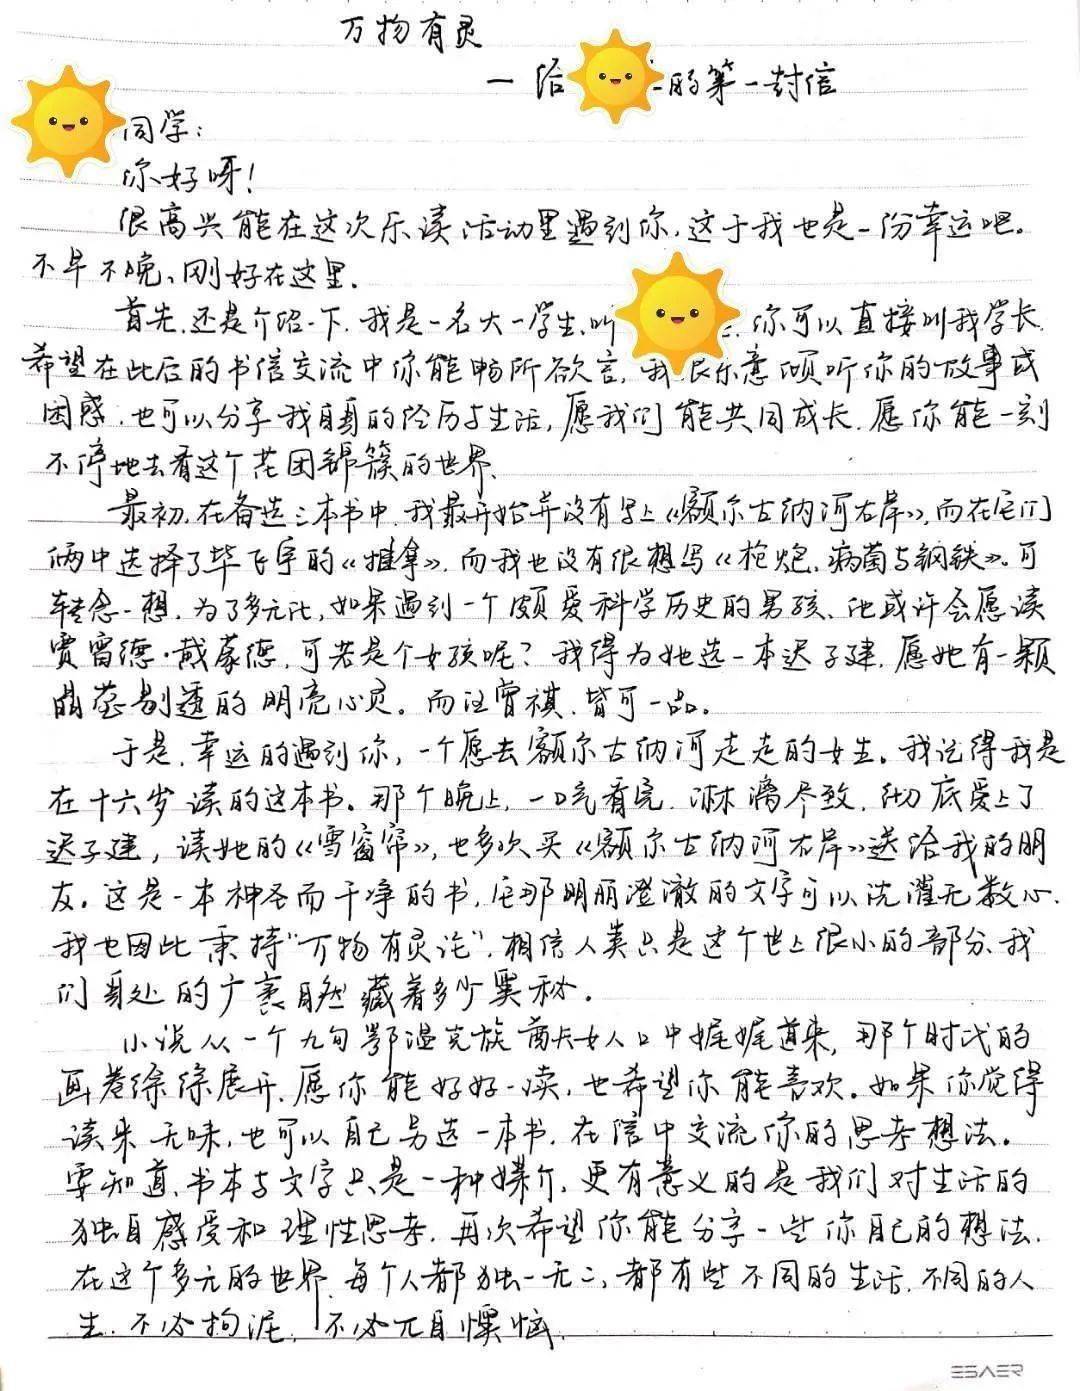 万物有灵
一给 的第一封信
同学：
你好呀！
很高兴能在这次乐读活动里遇到你，这于我也是一份幸运吧。
不早不晚、刚好在这里.
首先，还是介绍一下.我是一名大一学生，叫 你可以直接叫我学长.
希望在此后的书信交流中你能畅所欲言，我很乐意倾听你的故事或
困惑.也可以分享我自身的经历与生活，愿我们能共同成长.愿你能一刻
不停地去看这个花团锦簇的世界.
最初，在备选三本书中，我最开始并没有写上《额尔古纳河右岸》，而在它们
俩中选择了毕飞宇的《推拿》，而我也没有很想写《枪炮、病菌与钢铁》。可
转念一想，为了多元化，如果遇到一个颇爱科学历史的男孩、他或许会愿读
贾雷德·戴蒙德，可若是个女孩呢？我得为她选一本迟子建，愿她有一颗
晶莹剔透的明亮心灵。而汪曾祺，皆可一品。
于是，幸运的遇到你，一个愿去额尔古纳河走走的女生。我记得我是
在十六岁读的这本书。那个晚上，一口气看完，淋漓尽致，彻底爱上了
迟子建，读她的《雪窗帘》，也多次买《额尔古纳河右岸》送给我的朋
友。这是一本神圣而干净的书，它那明丽澄澈的文字可以洗濯无数心.
我也因此秉持“万物有灵论”，相信人类只是这个世上很小的部分、我
们身处的广袤自然藏着多少奥秘。
小说从一个九旬鄂温克族酋长女人口中娓娓道来，那个时代的
画卷徐徐展开，愿你能好好一读，也希望你能喜欢。如果你觉得
读来无味，也可以自己另选一本书，在信中交流你的思考想法。
要知道，书本与文字只是一种媒介，更有意义的是我们对生活的
独自感受和理性思考，再次希望你能分享一些你自己的想法.
在这个多元的世界，每个人都独一无二，都有些不同的生活，不同的人
生.不必拘泥，不必兀自懊恼.
ESAER